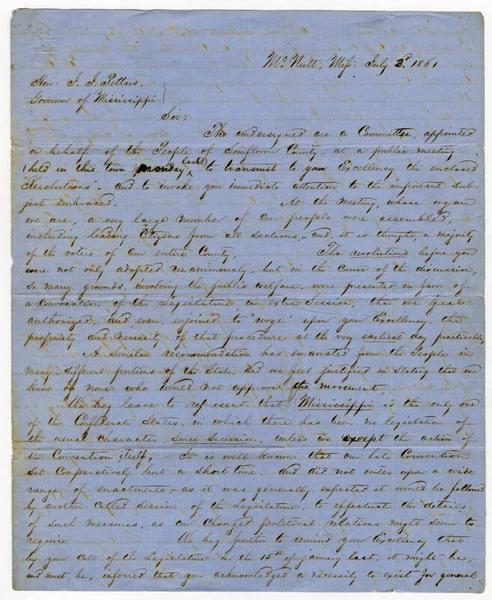 McNutt, Miss. July 3d 1861
Hon. J. J. Pettus,
Governor of Mississippi
Sir,
The undersigned are a Committee, appointed
on behalf of the People of Sunflower County, at a public meeting
(held in this town monday last) to transmit to your Excellency the enclosed
Resolutions - and to invoke your immediate attention to the important sub-
ject embraced. At the Meeting, whose organ
we are, a very large number of our people were assembled,
including leading Citizens from all sections, and, it is thought, a majority
of the voters of our entire County. The resolutions before you
were not only adopted unanimously, but in the course of the discussion,
so many grounds, involving the public welfare, were presented in favor of
a Convocation of the Legislature in extra Session, that we feel
authorized, and, even, enjoined to "urge" upon your Excellency the
propriety and necessity of that procedure at the very earliest day practicable.
A similar recommendation has emanated from the People in
many different portions of the State, and we feel justified in stating that we
know of none who would not approve the movement.
We beg leave to represent that Mississippi is the only one
of the Confederate States, in which there has been no legislation of
the usual character, since Secession, unless we except the action of
the Convention itself. It is well known that our late Convention
sat comparatively but a short time. And did not enter upon a wide
range of enactments - as it was generally expected it would be followed
by another called Session of the Legislature, to effectuate the details
of such measures, as our changed political relations might seem to
require. We beg further to remind your Excellency that
by your call of the Legislature on the 15th of january last, it might be,
and must, be, inferred that you acknowledged a necessity to exist for general